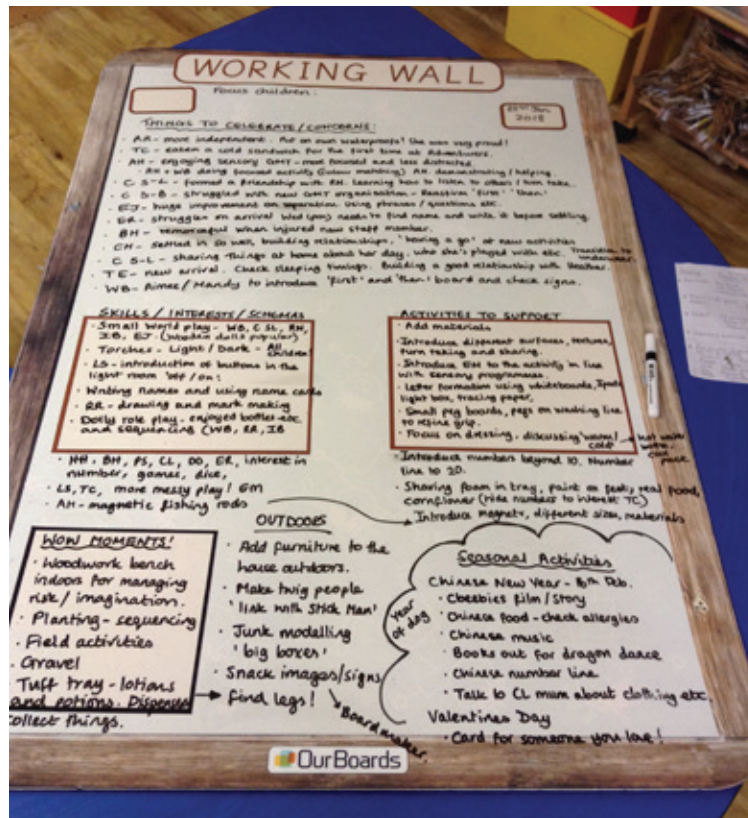 WORKING WALL
Focus children:
2018
THINGS TO CELEBRATE/CONCERNS:
· AR - more independent. Put on own waterproofs! She was very proud!
· TC - eaten a cold sandwich for the first time at Adventurers.
· AH - enjoying sensory GMT - more focused and less distracted
· AH + WB doing focused activity (colour matching) AH demonstrating/helping
· C S-L - formed a friendship with RH. Learning how to listen to others/turn take.
· C S-B - struggled with new GMT organisation - Reassure 'first' 'then'
· EJ - huge improvement on separation. Using phrases/questions etc.
· ER - struggles on arrival Wed (pm) needs to find name and write it before settling.
· BH - remorseful when injured new staff member.
· CH - settled in so well, building relationships, 'having a go' at new activities
· C S-L - sharing things at home about her day, who she's played with etc. Transition to underwear.
· TE - new arrival. Check sleeping timings. Building a good relationship with Heather.
· WB - Aimee/Mandy to introduce 'first' and 'then' board and check signs.
SKILLS/INTERESTS/SCHEMAS
· Small World play - WB, C SL, RH,
IB, EJ (Wooden dolls popular)
· Torches - Light/Dark - All children!
· LS - introduction of buttons in the
light room 'off/on!
· Writing names and using name cards
· RR - drawing and mark making
· Dolly role play - enjoyed bottles etc
and sequencing (WB, RR, IB
· HH, BH, PS, CL, DO, ER, interest in
number, games, dice,
· LS, TC, more messy play! Gm
· AH - magnetic fishing rods
ACTIVITIES TO SUPPORT
· Add materials
· Introduce different surfaces, textures,
turn taking and sharing.
· Introduce to the activity in line
with sensory programmes.
· Letter formation using whiteboards, Ipads
light box, tracing paper,
· Small peg boards, pegs on washing line
to refine grip.
· Focus on dressing, discussing 'warm/cold' → hot water bottle, cool pack
· Introduce numbers beyond 10. Number
line to 20.
· Sharing foam in tray, paint on feet, real food,
cornflower (hide numbers to interest TC)
· Introduce magnets, different sizes, materials
WOW MOMENTS!
· Woodwork bench
indoors for managing
risk/imagination.
· Planting - sequencing
· Field activities
· Gravel
· Tuff tray - lotions
and potions. Dispensers
collect things.
OUTDOORS
· Add furniture to the
house outdoors.
· Make twig people
'link with Stick Man'
· Junk modelling
'big boxes'
· Snack images/signs
→ find legs!
Boardmaker.
Seasonal Activities
Chinese New Year - 16th Feb.
Year of dog
· Cbeebies film/story
· Chinese food - check allergies
· Chinese music
· Books out for dragon dance
· Chinese number line
· Talk to CL mum about clothing etc.
Valentines Day
· Card for someone you love!
OurBoards